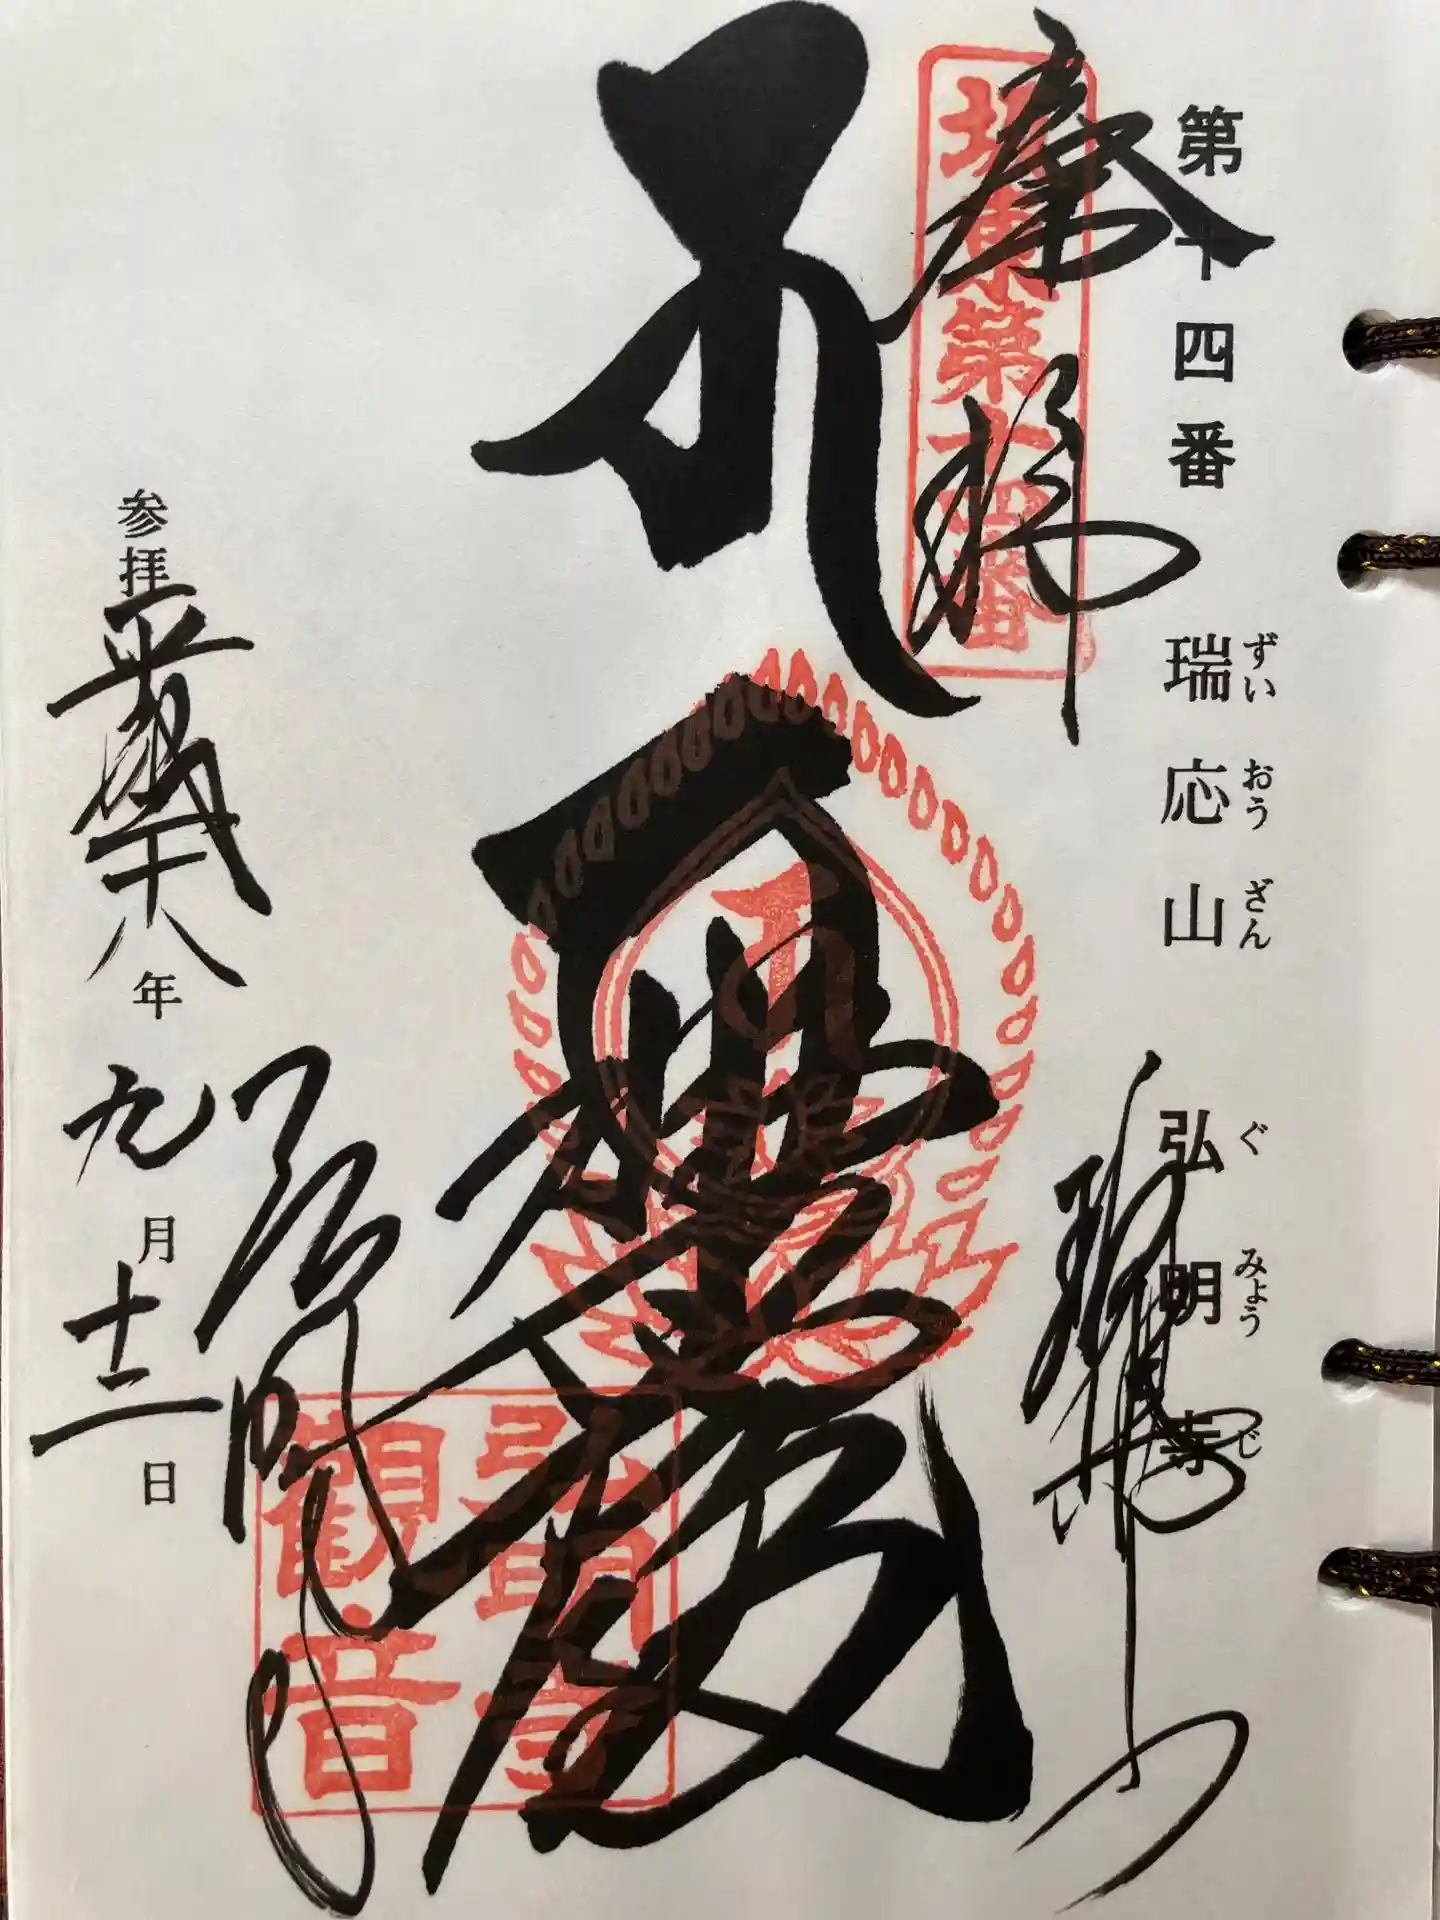 第十四番 瑞応山 弘明寺
ずいおうざん ぐみょうじ
奉拝
坂東第十四番
大悲殿
弘明寺
弘明寺
観音
参拝平成二十八年九月十二日